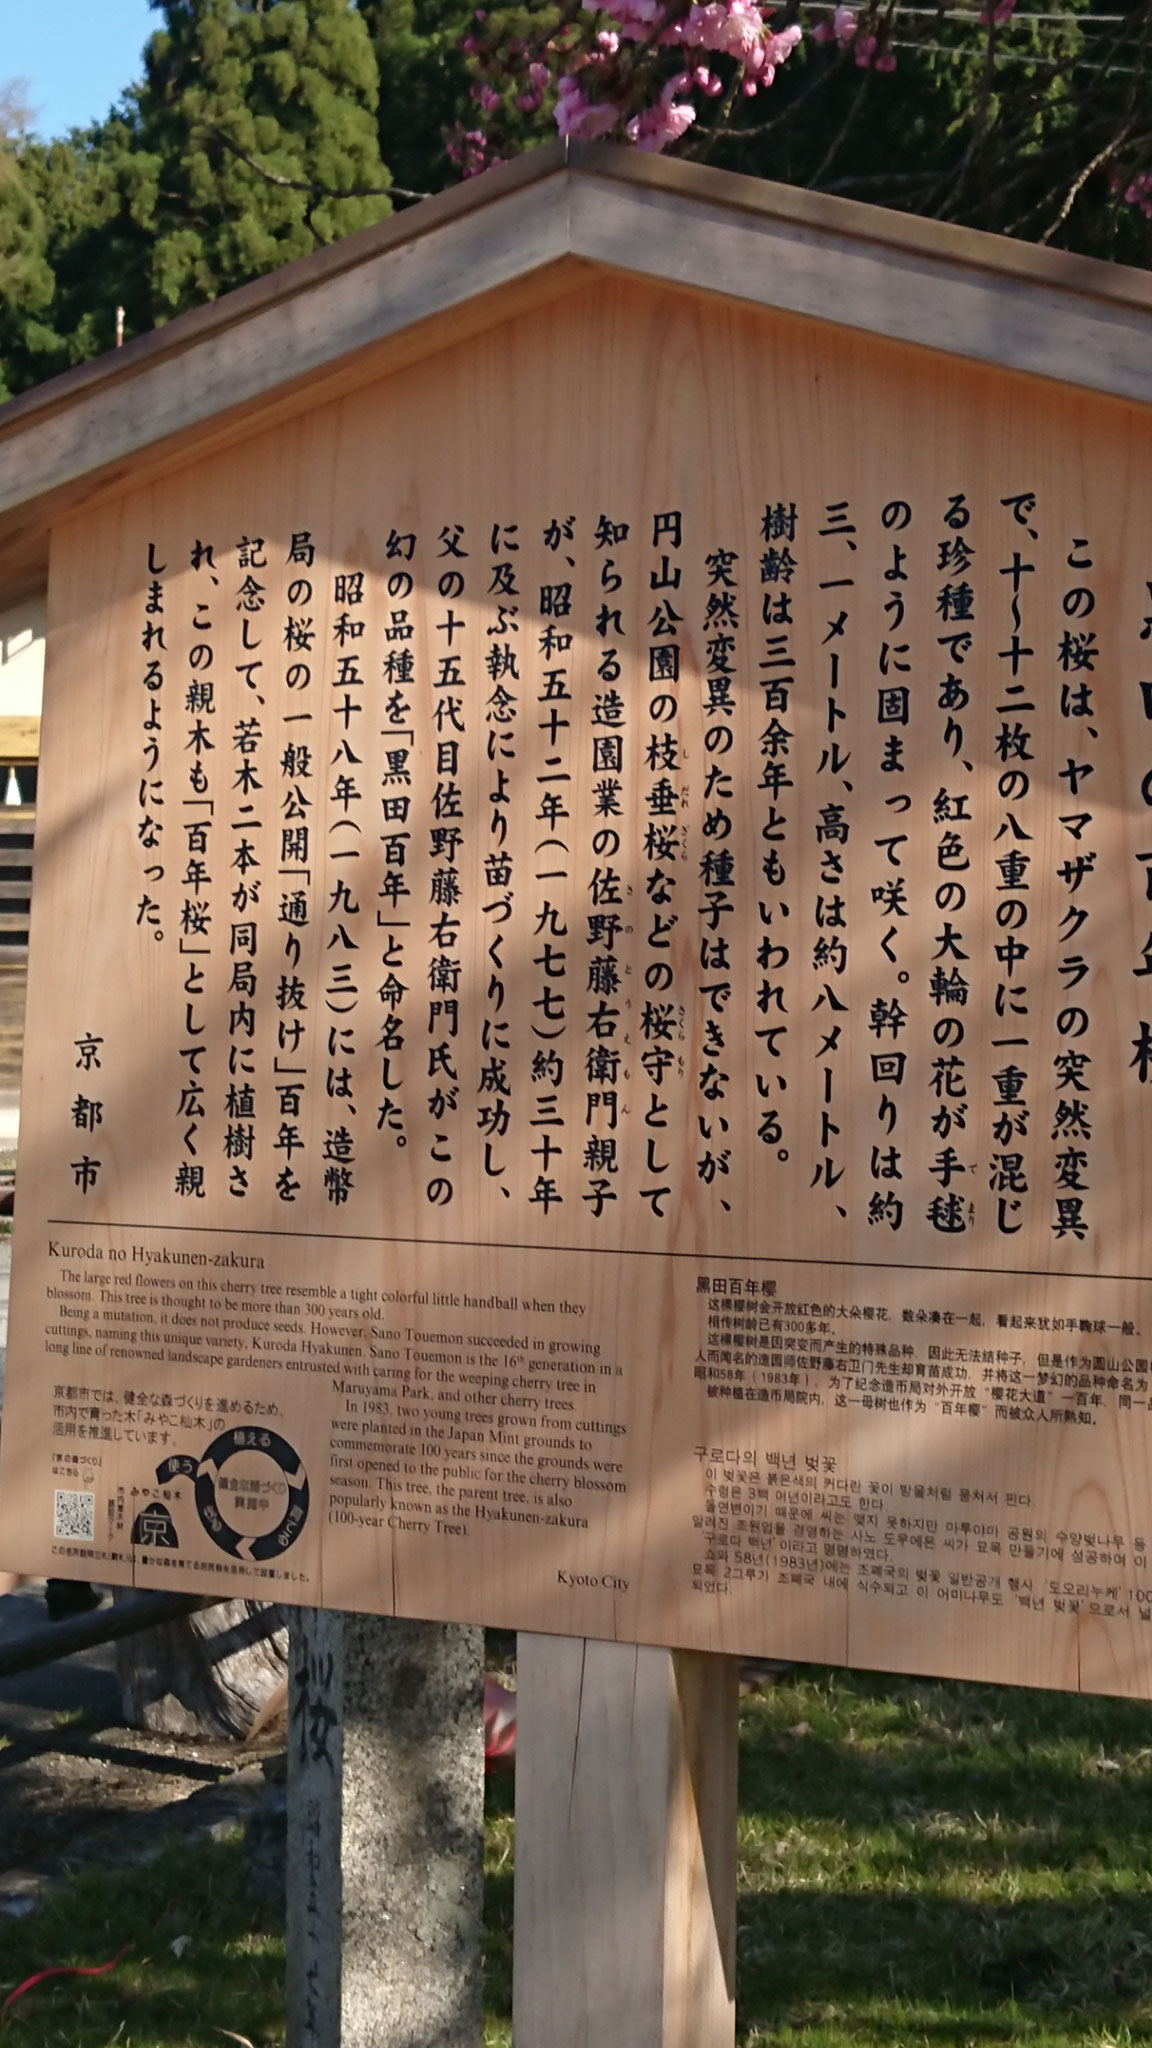 この桜は、ヤマザクラの突然変異
で、十〜十二枚の八重の中に一重が混じ
る珍種であり、紅色の大輪の花が手毬
のように固まって咲く。幹回りは約
三、一メートル、高さは約八メートル、
樹齢は三百余年ともいわれている。
突然変異のため種子はできないが、
円山公園の枝垂桜などの桜守として
知られる造園業の佐野藤右衛門親子
が、昭和五十二年(一九七七)約三十年
に及ぶ執念により苗づくりに成功し、
父の十五代目佐野藤右衛門氏がこの
幻の品種を「黒田百年」と命名した。
昭和五十八年(一九八三)には、造幣
局の桜の一般公開「通り抜け」百年を
記念して、若木二本が同局内に植樹さ
れ、この親木も「百年桜」として広く親
しまれるようになった。
京都市
Kuroda no Hyakunen-zakura
The large red flowers on this cherry tree resemble a tight colorful little handball when they
blossom. This tree is thought to be more than 300 years old.
Being a mutation, it does not produce seeds. However, Sano Touemon succeeded in growing
cuttings, naming this unique variety, Kuroda Hyakunen. Sano Touemon is the 16th generation in a
long line of renowned landscape gardeners entrusted with caring for the weeping cherry tree in
Maruyama Park, and other cherry trees.
In 1983, two young trees grown from cuttings
were planted in the Japan Mint grounds to
commemorate 100 years since the grounds were
first opened to the public for the cherry blossom
season. This tree, the parent tree, is also
popularly known as the Hyakunen-zakura
(100-year Cherry Tree).
Kyoto City
京都市では、健全な森づくりを進めるため、
市内で育った木「みやこ杣木」の
活用を推進しています。
「京の森づくり」
はこちら
みやこ杣木
京
植える
使う
黑田百年樱
这棵樱树会开放红色的大朵樱花，数朵凑在一起，看起来犹如手鞠球一般。
相传树龄已有300多年。
这棵樱树是因突变而产生的特殊品种，因此无法结种子，但是作为圆山公园
人而闻名的造园师佐野藤右卫门先生却育苗成功，并将这一梦幻的品种命名为
昭和58年（1983年），为了纪念造币局对外开放“樱花大道”一百年，同一
被种植在造币局院内，这一母树也作为“百年樱”而被众人所熟知。
구로다의 백년 벚꽃
이 벚꽃은 붉은색의 커다란 꽃이 방울처럼 뭉쳐서 핀다.
수령은 3백 여년이라고도 한다.
돌연변이기 때문에 씨는 맺지 못하지만 마루야마 공원의 수양벚나무 등
알려진 조원업을 경영하는 사노 도우에몬 씨가 묘목 만들기에 성공하여 이
'구로다 백년'이라고 명명하였다.
쇼와 58년(1983년)에는 조폐국의 벚꽃 일반공개 행사 '도오리누케' 100
묘목 2그루가 조폐국 내에 식수되고 이 어미나무도 '백년 벚꽃'으로서 널
되었다.
桜